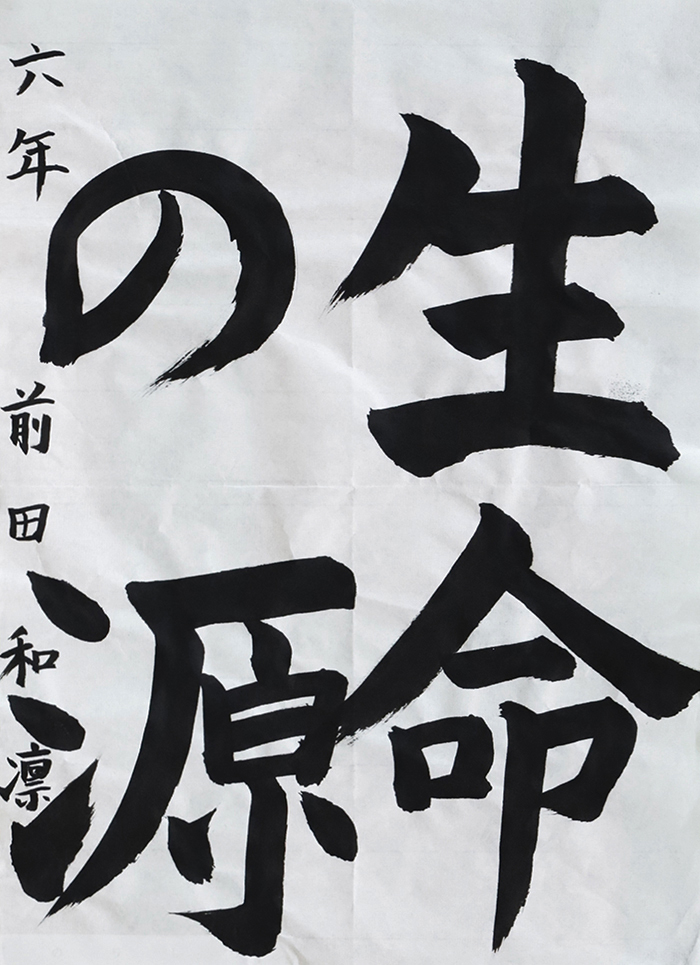 生命
の源
六年 前田和凛